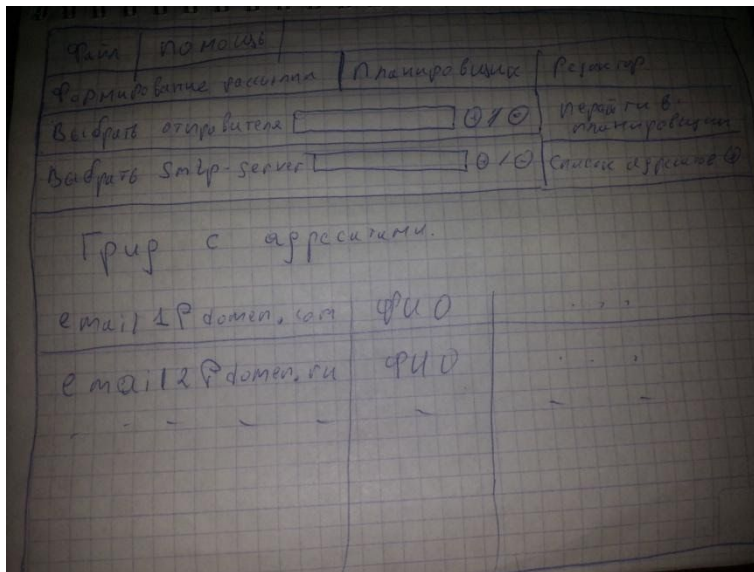 Файл | помощь |
Формирование рассылки | Планировщик | Редактор
Выбрать отправителя ⊕ / ⊖ перейти в планировщик
Выбрать Smtp-Server ⊕ / ⊖ Список адресатов ⊕
Грид с адресатами.
email1@domen.com ФИО . . .
email2@domen.ru ФИО . . .